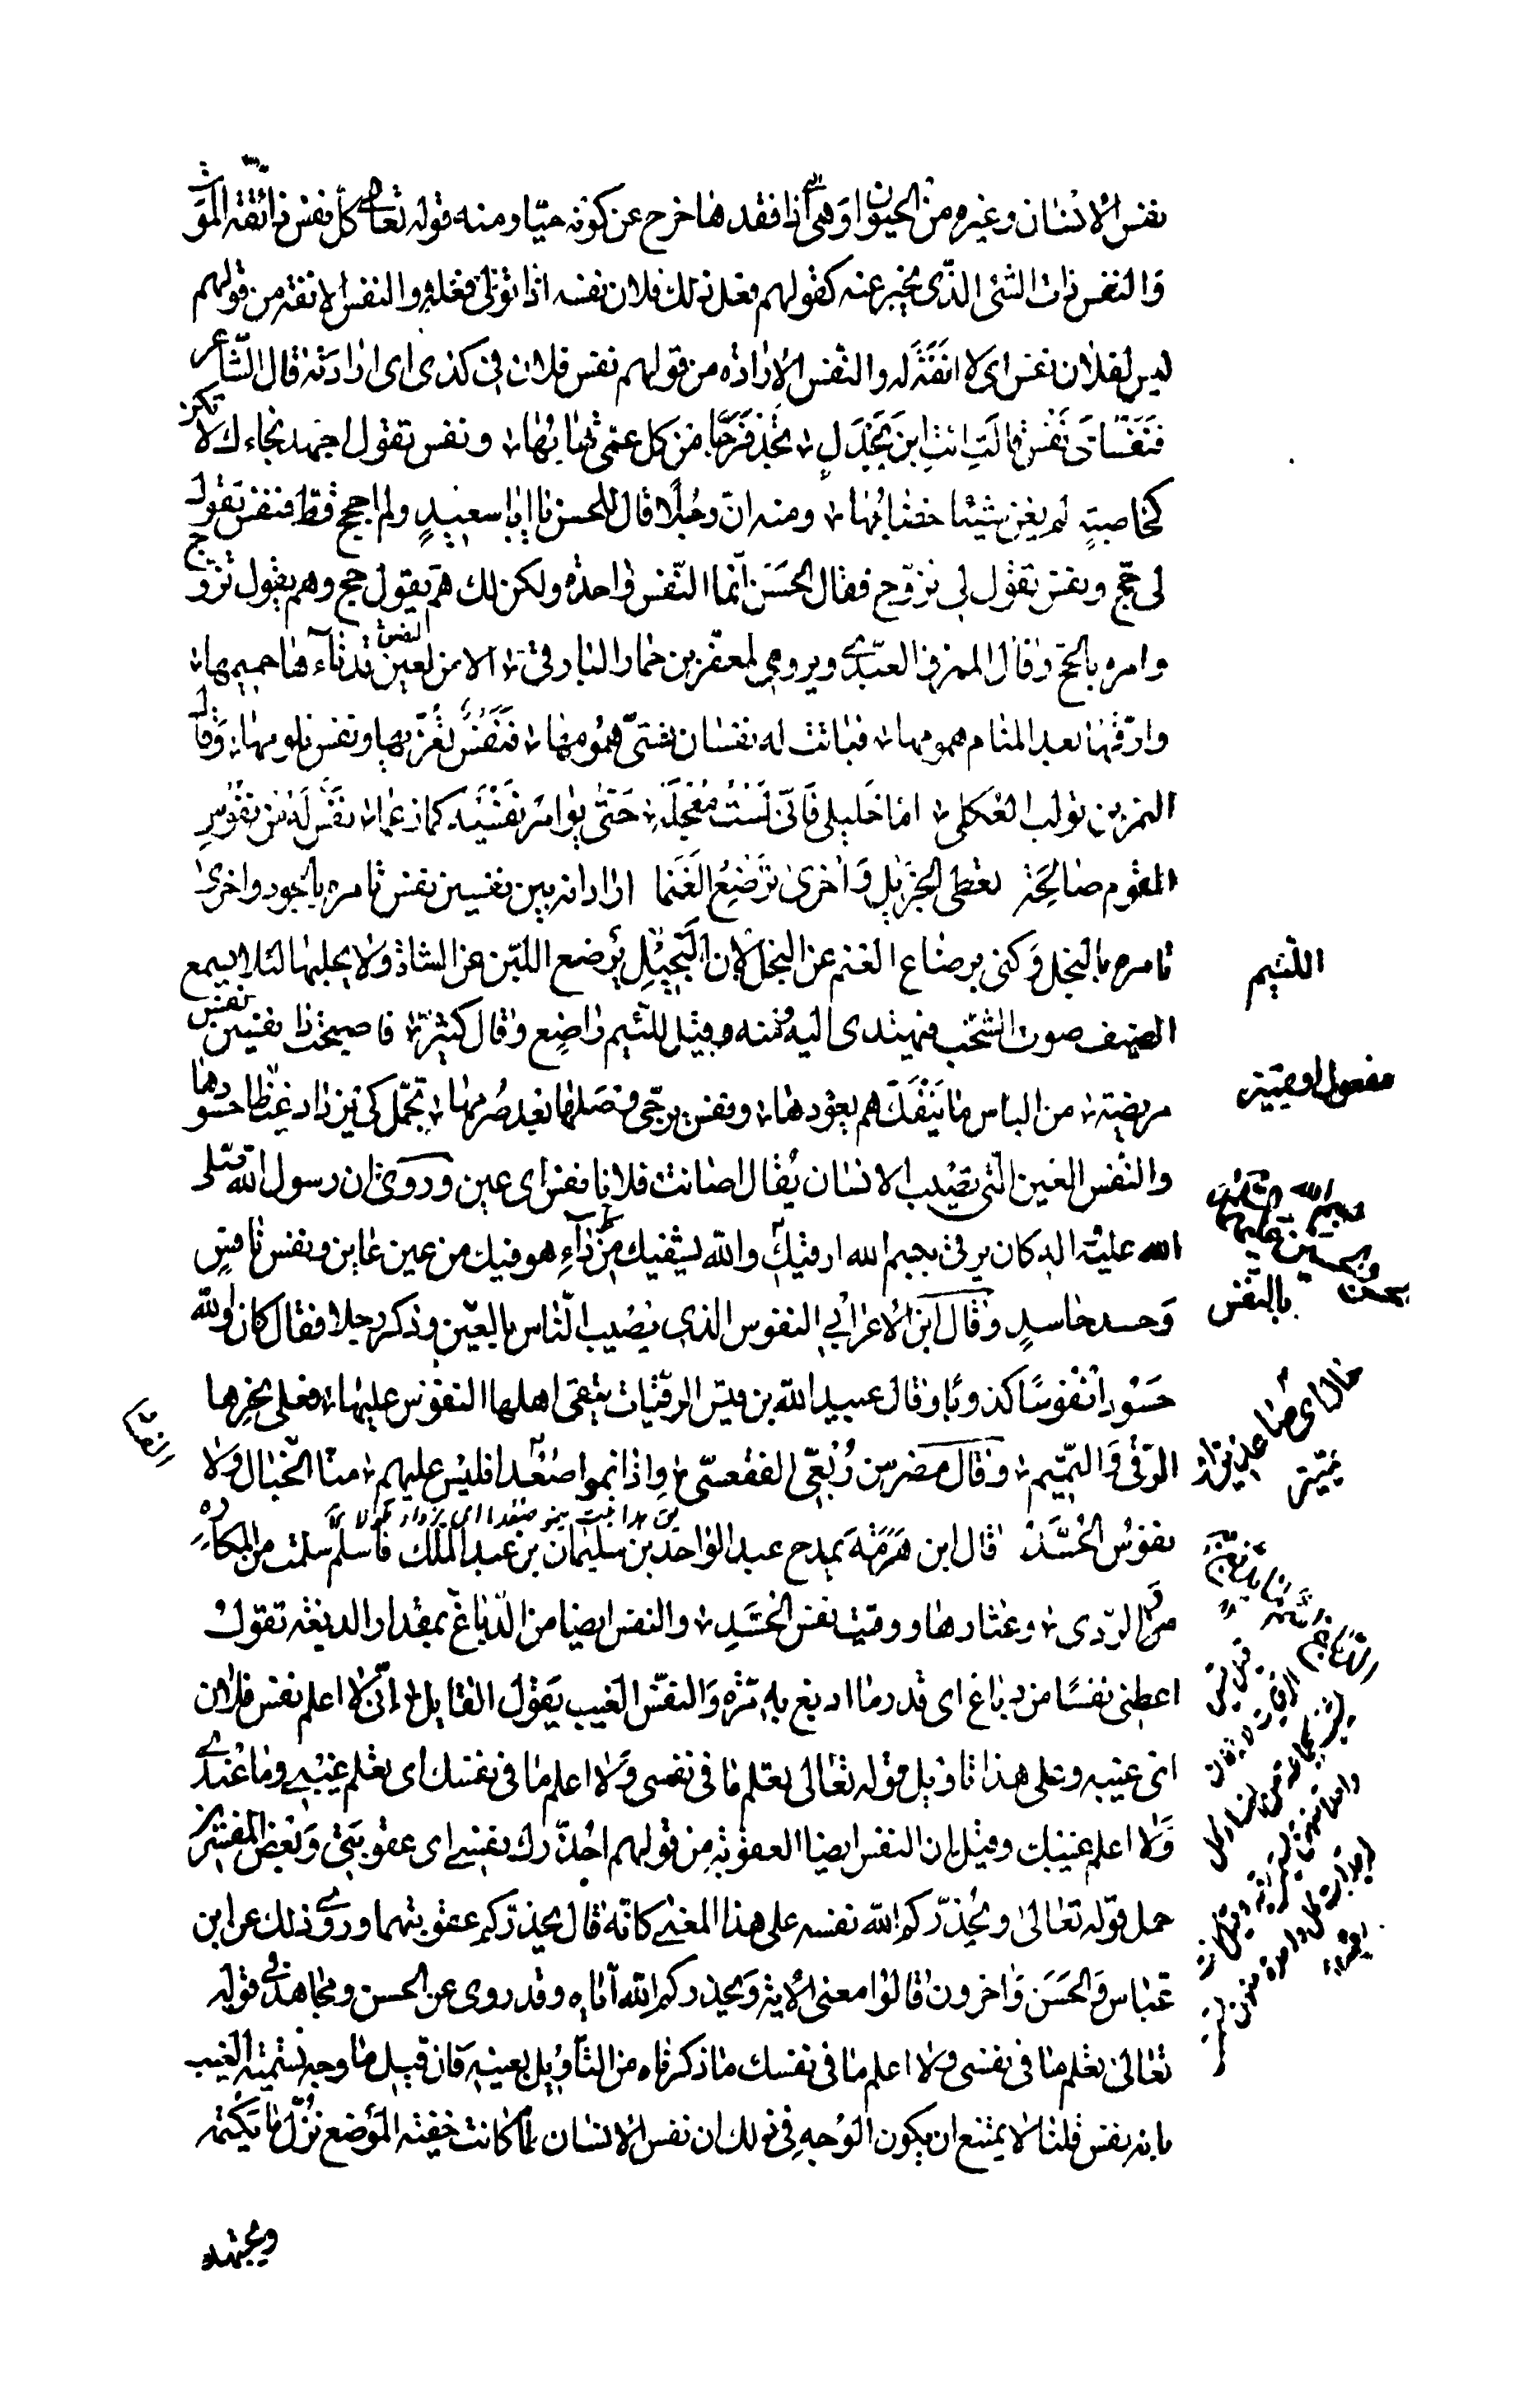 نفس الانسان وغيره من الحيوان وهي التي اذا فقدها خرج عن كونه حيّا ومنه قوله تعالى كلّ نفس ذائقة الموت
والنفس ذات الشئ الذّى يخبر عنه كقولهم فعل ذلك فلان نفسه اذا تولّى فعله والنفس الانفة من قولهم
ليس لفلان نفس اى لا انفَة له والنّفس الارادة من قولهم نفس فلان في كذى اى ارادته قال الشّاعر
فنفساى نفس قالت ائت ابن بَحْدَلٍ تجد فَرَجًا من كل غمّى تهابها ونفس تقول اجهد نجاءك لا تكن
كخاضبةٍ لم يغن شيئا خضابُها ومنه انّ رجُلًا قال للحسن يا ابا سعيدٍ ولم احجج قطّ فنفس تقول
لى حجّ ونفس تقول لى تزوّج فقال الحسَن انّما النّفس واحدة ولكن لك همّ يقول حج وهم يقول تزوّج
وامره بالحجّ وقال الممزق العبّدي ويروى لمعقّر بن حمار البارقى الا من لعين قد نآءها حميمها
وارّقنها بعد المنام همومها فباتت له نفسان شتىّ همُومها فنَفسٌ تعُزّيها ونفس تلومها وقال
النمر بن تولب العُكلى امّا خليلى فانّى لَسْتُ مُعْجِلَه حَتّى يؤامر نفسَيْه كما زعما نفس له من نفُوسِ
القوم صالحة تعطى الجزيل وَاُخرىٰ تَرْضِعُ الغَنَما اراد انه بين نفسين نفس تامره بالجود واخرىٰ
تامره بالبخل وكنى برضاع الغنم عن البخل لان البَخِيل يُرضع اللبن من الشاة ولا يحلبها لئلا يسمع
الضيف صوت الشخب فيهتدى اليه ومنه قيل للئيم راضِع وقال كثيّر فاصبحت ذا نفسين نفس
مريضة من الياس ما يَنْفَكّ هم يعودها ونفس ترجّى وصلها بعد صُرمها تجمّل كى يزداد غيظا حسودها
والنّفس العين الّتى تصيب الانسان يُقال اصابت فلانا نفس اى عين وروى ان رسول الله صلى
الله عليه واله كان يرقى بسم الله ارقيك والله يشفيك من كل داء هو فيك من عين عاين ونفس نافسٍ
وَحسد حاسدٍ وقال ابن الاعرابى النفوس الذى يُصيب النّاس بالعين وذكر رجلا فقال كان والله
حَسُودا نفُوسًا كذوبًا وقال عبيد الله بن قيس الرقيّات يتّقى اهلها النفوس عليها فعلى نحرها
الرّقى وَالتّميم وقال مضرس رُبْعِى الفقعسىّ واذا نموا صُعُدا فليس عليهم منّا الخبال ولا
نفوسُ الحُسَّد قال ابن هَرمَة يمدح عبد الواحد بن سليمان بن عبد الملك فاسلم سلمت من المكاره
والرّدى وعثارها ووقيت نفس الحُسَّدِ والنفس ايضا من الدّباغ بمقدار الدبغة تقول
اعطنى نفسًا من دباغ اى قدر ما ادبغ به مرّة وَالنفس الغيب يَقول القايل انّى لا اعلم نفس فلان
اى غيبه وعلى هذا تاويل قوله تعالى تعلم ما فى نفسى وَلا اعلم ما فى نفسك اى تعلم غيْبى وما عْندى
وَلا اعلم غيبك وقيل ان النفس ايضا العقوبة من قولهم احُذّرك نفسى اى عقوبتى وَبعض المفسّرين
حمل قوله تعالىٰ ويُحذّركم الله نفسه على هذا المعنى كانّه قال يحذّركم عقوبته وروى ذلك عن ابن
عبّاس وَالحسَن وَاخرون قالوا معنى الاية وَيحذركم الله ايّاه وقد روى عن الحسن ومجاهد فى قوله
تعالىٰ تعلم ما فى نفسى ولا اعلم ما فى نفسك ما ذكرناه من التأويل بعينه فان قيل ما وجه تسمية الغيب
بانه نفس قلنا لا يمتنع ان يكون الوَجه فى ذلك ان نفس الانسان لمّا كانت خفيّة المَوضع نزّل ما يكتمه
ويجتهد
اللئيم
مفعول او تمييز
بالنّفس